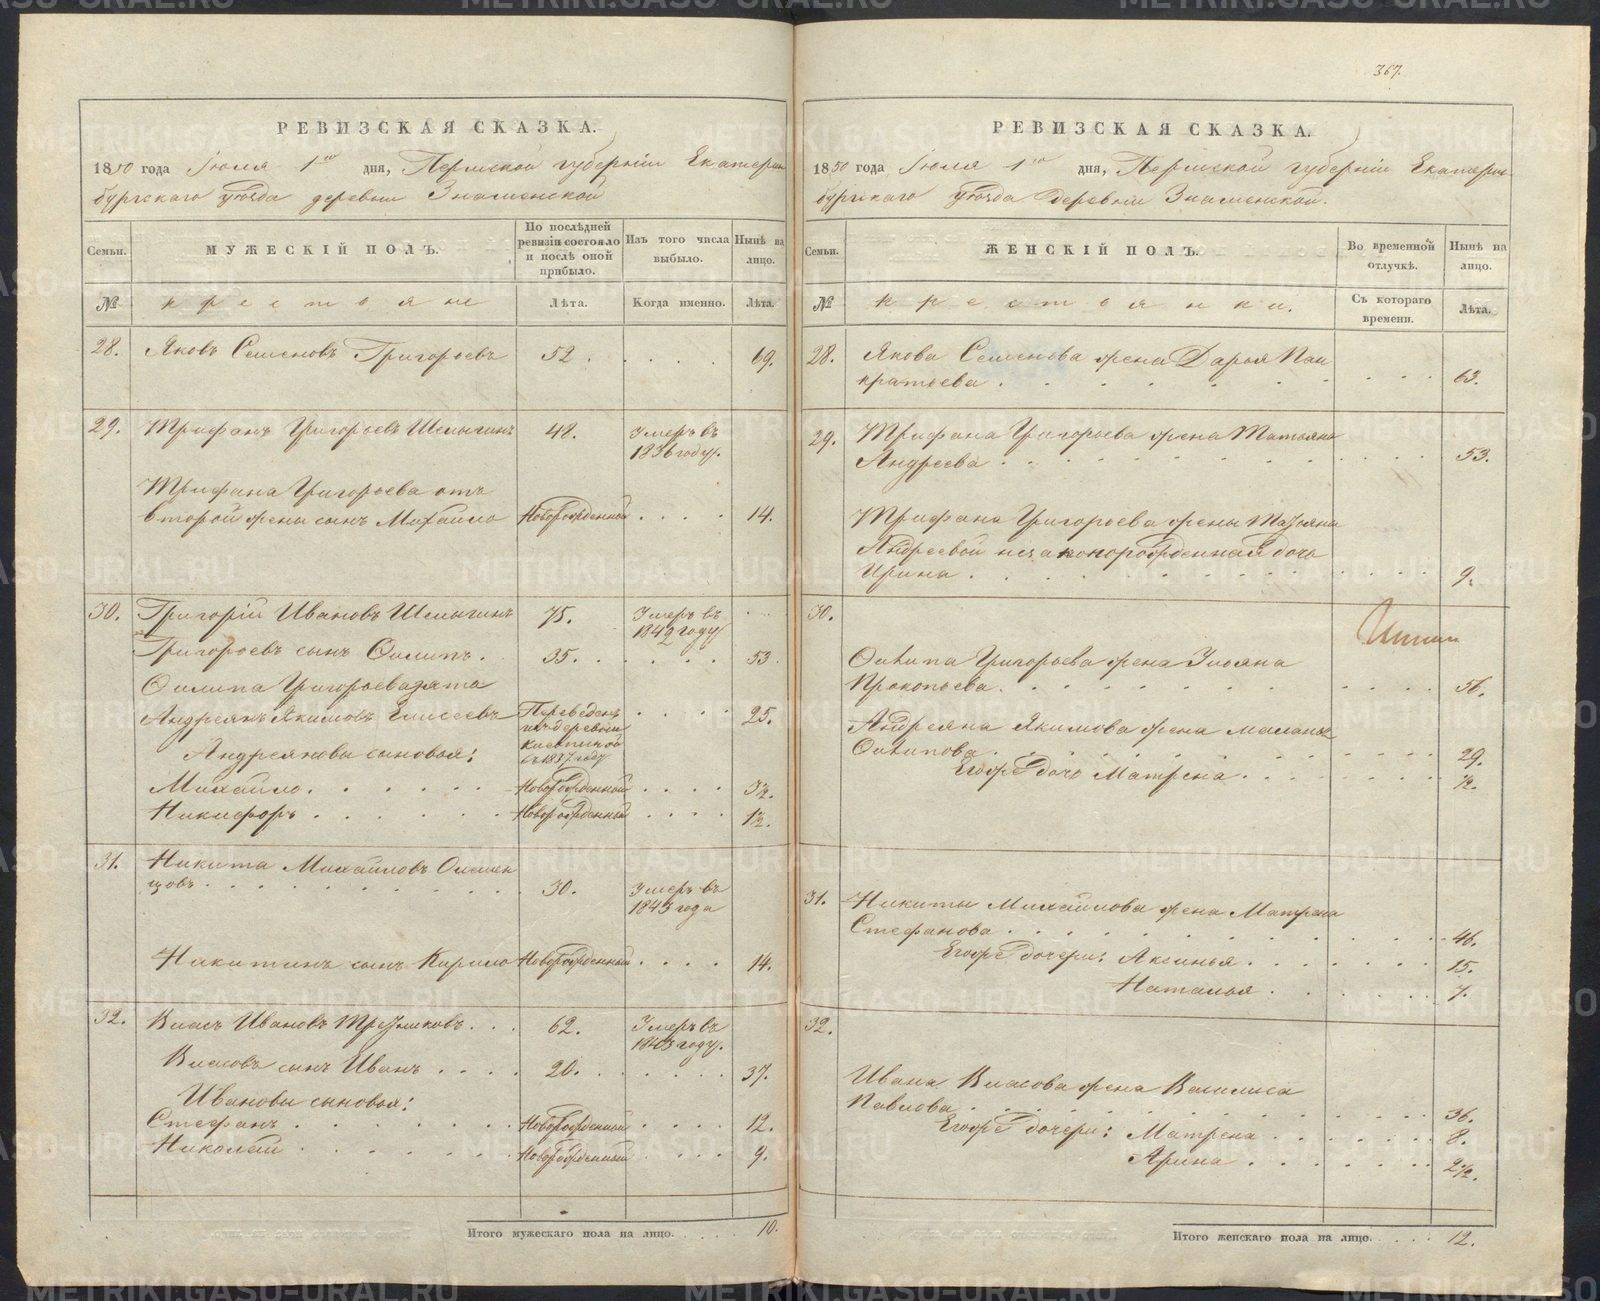 367.
РЕВИЗСКАЯ СКАЗКА.
1850 года Июля 1го дня, Пермской губерніи Екатерин
бургскаго уѣзда деревни Знаменской
Семьи.
МУЖЕСКІЙ ПОЛЪ.
По послѣдней
ревизіи состояло
и послѣ оной
прибыло.
Изъ того числа
выбыло.
Нынѣ на
лицо.
№
крестьяне
Лѣта.
Когда именно.
Лѣта.
28. Яковъ Семеновъ Григорьевъ 52. 69.
29. Трифанъ Григорьевъ Шелыгинъ 48. Умеръ въ
1836 году.
Трифана Григорьева отъ
второй жены сынъ Михайло Новорожденный 14.
30. Григорій Ивановъ Шелыгинъ 75. Умеръ въ
1842 году
Григорьевъ сынъ Осипъ. 35. 53.
Осипа Григорьева зята
Андреянъ Якимовъ Елисеевъ Переведенъ 25.
изъ деревни
въ 1837 году
Андреяновы сыновья:
Михайло. Новорожденный 3½.
Никифоръ. Новорожденный 1½.
31. Никита Михайловъ
цовъ. 30. Умеръ въ
1843 года
Никитинъ сынъ Кирило Новорожденный 14.
32. Власъ Ивановъ Трезниковъ. 62. Умеръ въ
1843 году.
Власовъ сынъ Иванъ 20. 37.
Ивановы сыновья:
Стефанъ. Новорожденный 12.
Николай Новорожденный 9.
Итого мужескаго пола на лицо. 10.
РЕВИЗСКАЯ СКАЗКА.
1850 года Июля 1го дня, Пермской губерніи Екатерин
бургскаго уѣзда деревни Знаменской.
Семьи.
ЖЕНСКІЙ ПОЛЪ.
Во временной
отлучкѣ.
Нынѣ на
лицо.
№
крестьянки.
Съ котораго
времени.
Лѣта.
28. Якова Семенова жена Дарья Пан
кратьева. 63.
29. Трифана Григорьева жена Татьяна
Андреева. 53.
Трифана Григорьева жены Татьяны
Андреевой незаконорожденная дочь
Ирина. 9.
30.
Осипа Григорьева жена Ульяна
Прокопьева. 56.
Андреяна Якимова жена Маланья
Осипова. 29.
Егоже дочь Матрена. ½.
31. Никиты Михайлова жена Матрена
Стефанова. 46.
Егоже дочери: Аксинья. 15.
Наталья. 7.
32.
Ивана Власова жена Василиса
Павлова. 36.
Егоже дочери: Матрена 8.
Арина 2½.
Итого женскаго пола на лицо. 12.
METRIKI.GASO-URAL.RU